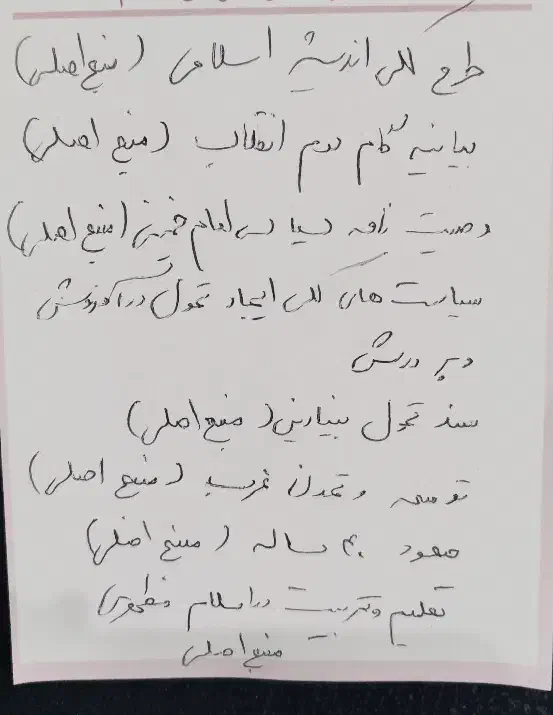 طرح کلی اندیشه اسلامی (منبع اصلی)
بیانیه گام دوم انقلاب (منبع اصلی)
وصیت نامه سیاسی امام خمینی (منبع اصلی)
سیاست های کلی ایجاد تحول در آموزش
و پرورش
سند تحول بنیادین (منبع اصلی)
توسعه و تمدن غرب (منبع اصلی)
صعود ۴۰ ساله (منبع اصلی)
تعلیم و تربیت در اسلام مطهری
منبع اصلی